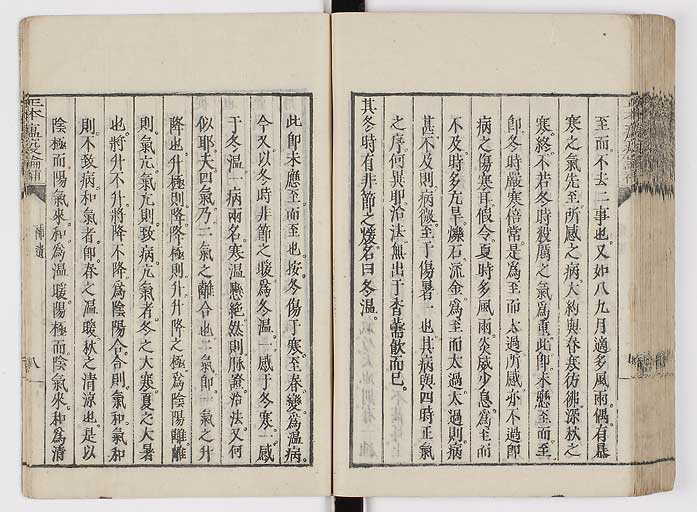 至而不去二事也又如八九月適多風雨偶有暴
寒之氣先至所感之病大約與春寒彷彿深秋之
寒終不若冬時殺厲之氣爲重此即未應至而至
即冬時嚴寒倍常是爲至而太過所感亦不過即
病之傷寒耳假令夏時多風雨炎威少息爲至而
不及時多亢旱爍石流金爲至而太過太過則病
甚不及則病微至于傷暑一也其病與四時正氣
之序何異耶治法無出于香薷飲而已
其冬時有非節之煖名曰冬溫
此即未應至而至也按冬傷于寒至春變爲溫病
今又以冬時非節之暖爲冬溫一感于冬寒一感
于冬溫一病兩名寒溫懸絕然則脉證治法又何
似耶夫四氣乃二氣之離合也二氣即一氣之升
降也升極則降降極則升升降之極爲陰陽離離
則氣亢氣亢則致病亢氣者冬之大寒夏之大暑
也將升不升將降不降爲陰陽合合則氣和氣和
則不致病和氣者即春之溫暖秋之清涼也是以
陰極而陽氣來和爲溫暖陽極而陰氣來和爲清
補遺
八